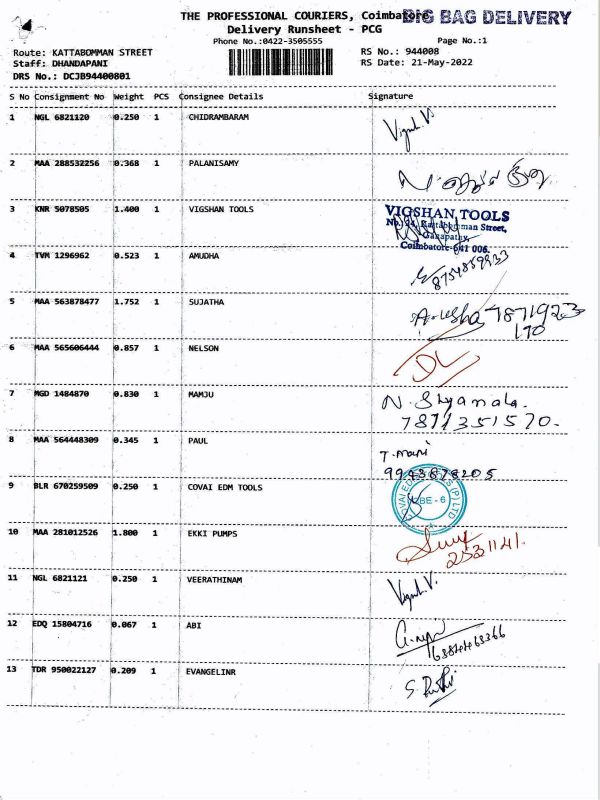 THE PROFESSIONAL COURIERS, Coimbatore
BIG BAG DELIVERY
Delivery Runsheet - PCG
Phone No.:0422-3505555
Page No.:1
Route: KATTABOMMAN STREET
RS No.: 944008
Staff: DHANDAPANI
RS Date: 21-May-2022
DRS No.: DCJB94400801
S No Consignment No Weight PCS Consignee Details Signature
1 NGL 6821120 0.250 1 CHIDRAMBARAM
2 MAA 288532256 0.368 1 PALANISAMY
3 KNR 5078505 1.400 1 VIGSHAN TOOLS
VIGSHAN TOOLS
Kattabomman Street,
Ganapathy,
Coimbatore-641 006.
4 TVM 1296962 0.523 1 AMUDHA
8754859933
5 MAA 563878477 1.752 1 SUJATHA
7871923
170
6 MAA 565606444 0.857 1 NELSON
DL
7 MGD 1484870 0.830 1 MAMJU
N. Shyamala.
7871351570.
8 MAA 564448309 0.345 1 PAUL
T. mani
9943878205
9 BLR 670259509 0.250 1 COVAI EDM TOOLS
CBE - 6
10 MAA 281012526 1.800 1 EKKI PUMPS
2531141.
11 NGL 6821121 0.250 1 VEERATHINAM
12 EDQ 15804716 0.067 1 ABI
13 TDR 950022127 0.209 1 EVANGELINR